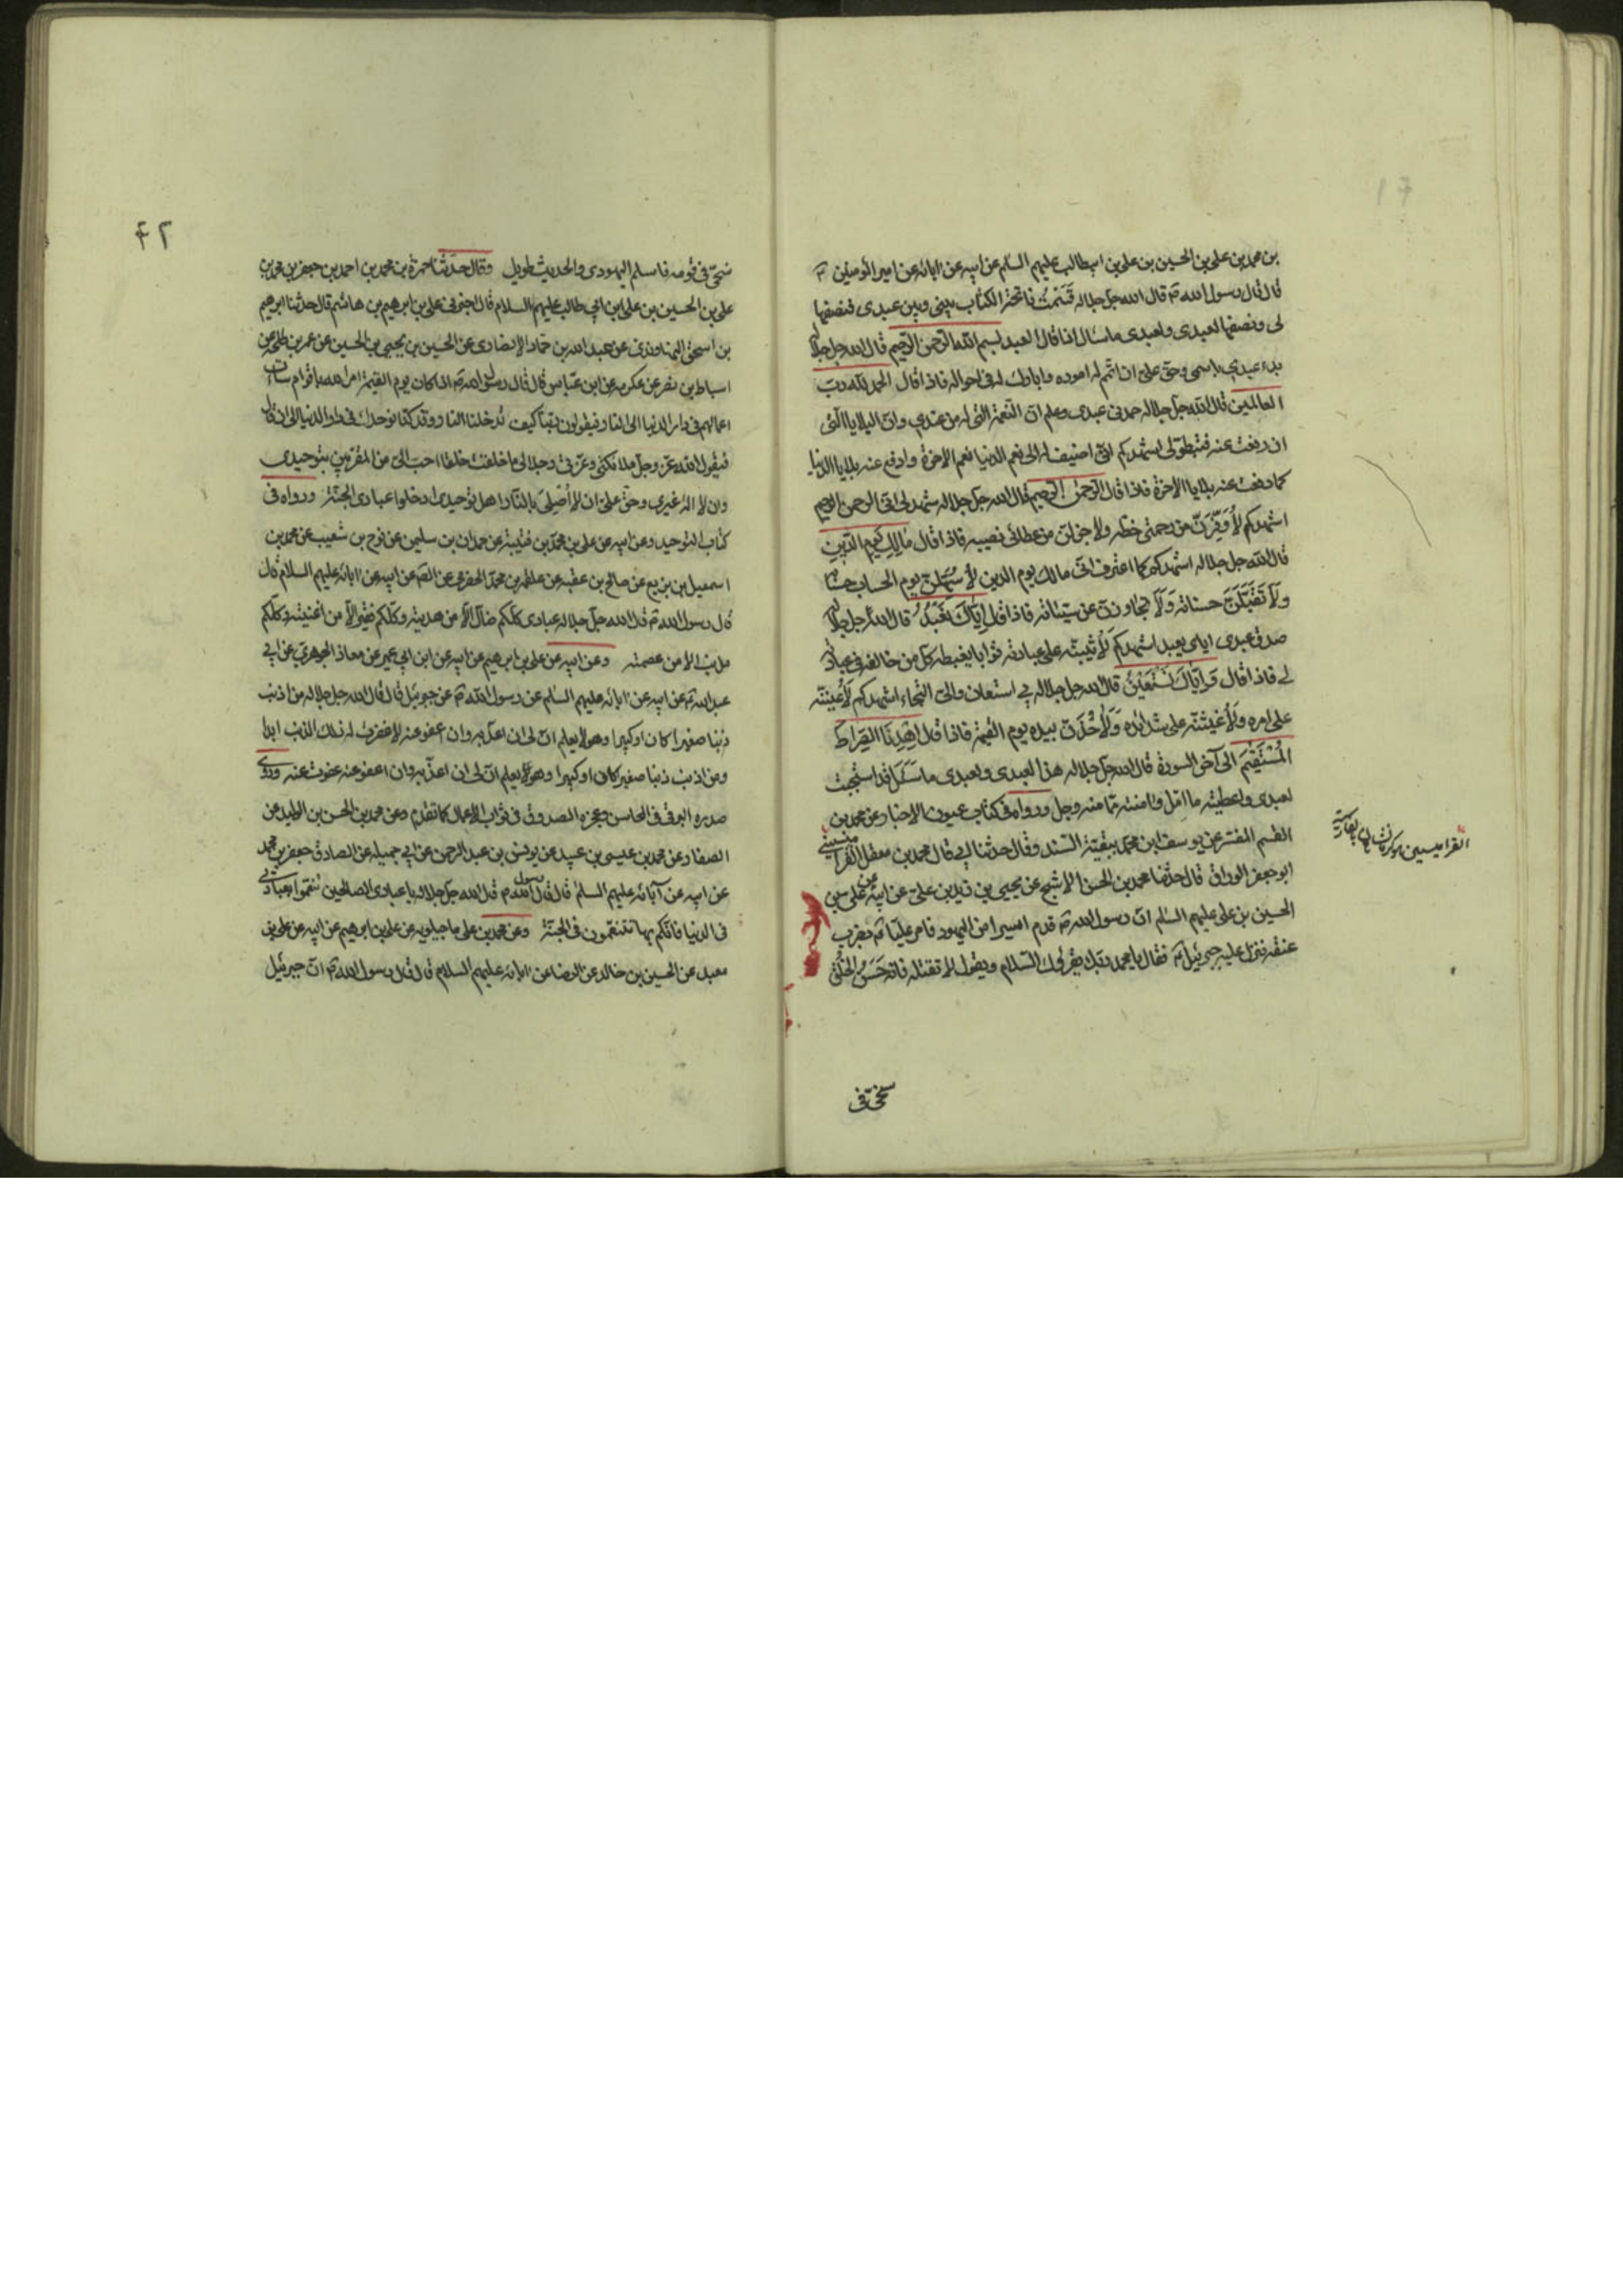 بن محمد بن علي بن الحسين بن علي بن ابيطالب عليهم السلم عن ابيه عن ابائه عن امير المؤمنين ع
قال قال رسول الله ص قال الله جل جلاله قَسَمْتُ فاتحة الكتاب بيني وبين عبدي فنصفها
لي ونصفها لعبدي ولعبدي ما سئال اذا قال العبد بسم الله الرحمن الرحيم قال الله جل جلاله
بدء عبدي باسمي وحق علي ان اتمم له اموره وابارك له في احواله فاذا قال الحمد لله رب
العالمين قال الله جل جلاله حمدني عبدي وعلم ان النعمة التي له من عندي وان البلايا التي
ان دفعت عنه فبتطولي اشهدكم اني اضيف له الى نعم الدنيا نعم الاخرة وادفع عنه بلايا الدنيا
كما دفعت عنه بلايا الاخرة فاذا قال الرحمن الرحيم قال الله جل جلاله شهد لي اني الرحمن الرحيم
اشهدكم لأُوَفِّرَنَّ من رحمتي حظه ولاجزلن من عطائي نصيبه فاذا قال مَالِكِ يَوم الدّينِ
قال الله جل جلاله اشهدكم كما اعترف اني مالك يوم الدين لأسهلن يوم الحساب حسابه
ولأتقبلن حسناته ولأتجاوزن عن سيئاته فاذا قال إِيّاكَ نَعْبُدُ قال الله جل جلاله
صدق عبدي اياي يعبد اشهدكم لأثيبنه على عبادته ثوابا يغبطه كل من خالفه في عبادته
لي فاذا قال وَايّاكَ نَسْتَعِيْنُ قال الله جل جلاله بي استعان والي التجاء اشهدكم لأُعيننه
على امره ولأغيثنه على شدائده ولأخذن بيده يوم القيمة فاذا قال اِهْدِنَا الصِّرَاطَ
الْمُسْتَقِيْمَ الى آخر السورة قال الله جل جلاله هذا لعبدي ولعبدي ما سئل قد استجبت
لعبدي واعطيته ما امّل وامنته مما منه وجل ورواه في كتاب عيون الاخبار وعن محمد بن
القسم المفسر عن يوسف ابن محمد ببقية السند وقال حدثنا ابي قال محمد بن معقل القراميسيني
ابو جعفر الوراق قال حدثنا محمد بن الحسن الاشج عن يحيى بن زيد بن علي عن ابيه عن علي بن
الحسين بن علي عليهم السلم ان رسول الله ص قدم اسيرا من اليهود فامر عليا ع بضرب
عنقه فنزل عليه جبرئيل ع فقال يا محمد ربك يقرئك السلام ويقول لا تقتله فانه حَسَنُ الخُلُقِ
سخيّ في
سخيّ في قومه فاسلم اليهودي والحديث طويل وقال حدّثنا حمزة بن محمد بن احمد بن جعفر بن محمد بن
علي بن الحسين بن علي ابن ابي طالب عليهم السلام قال اخبرني علي بن ابرهيم بن هاشم قال حدثنا ابرهيم
بن اسحق النهاوندي عن عبد الله بن حماد الانصاري عن الحسين بن يحيى بن الحسين عن عمر بن طلحة عن
اسباط بن نصر عن عكرمه عن ابن عباس قال قال رسول الله ص اذا كان يوم القيمة امر الله باقوام ساءت
اعمالهم في دار الدنيا الى النار فيقولون ربنا كيف تُدخلنا النار وقد كنا نوحدك في دار الدنيا الى ان قال
فيقول الله عزّ وجلّ ملائكتي وعزتي وجلالي ما خلقت خلقا احبّ اليّ من المقرّبين بتوحيدي
وان لا اله غيري وحق عليّ ان لا أُصْليَ بالنار اهل توحيدي ادخلوا عبادي الجنّة ورواه في
كتاب التوحيد وعن ابيه عن علي بن محمّد بن قتيبة عن حمدان بن سليمن عن نوح بن شعيب عن محمد بن
اسمعيل بن بزيع عن صالح بن عقبه عن علقمه بن محمّد الحضرمي عن الصم عن ابيه عن ابائه عليهم السلام قال
قال رسول الله ص قال الله جل جلاله عبادي كلّكم ضالّ الاّ من هديته وكلّكم فقير الاّ من اغنيته وكلّكم
مذنب الا من عصمته وعن ابيه عن علي بن ابرهيم عن ابيه عن ابن ابي عمير عن معاذ الجوهري عن ابي
عبد الله ع عن ابيه عن ابائه عليهم السلم عن رسول الله ص عن جبرئيل قال قال الله جل جلاله من اذنب
ذنبا صغيرا كان او كبيرا وهو لا يعلم ان لي ان اعذبه وان اعفو عنه لا غفرت له ذلك الذنب ابدا
ومن اذنب ذنبا صغير كان او كبيرا وهو يعلم ان لي ان اعذّبه وان اعفو عنه عفوت عنه وروى
صدره البرقي في المحاسن وعجزه الصدوق في ثواب الاعمال كما تقدم وعن محمد بن الحسن بن الوليد عن
الصفار وعن محمد بن عيسى بن عبيد عن يونس بن عبد الرحمن عن ابي جميله عن الصادق جعفر بن محمد
عن ابيه عن آبائه عليهم السلم قال قال رسول الله ص قال الله جل جلاله يا عبادي الصالحين تنعّموا بعبادتي
في الدنيا فانكم بها تتنعّمون في الجنّة وعن محمد بن علي ماجيلويه عن علي بن ابرهيم عن ابيه عن علي بن
معبد عن الحسين بن خالد عن الرضا عن ابائه عليهم السلام قال قال رسول الله ص ان جبرئيل